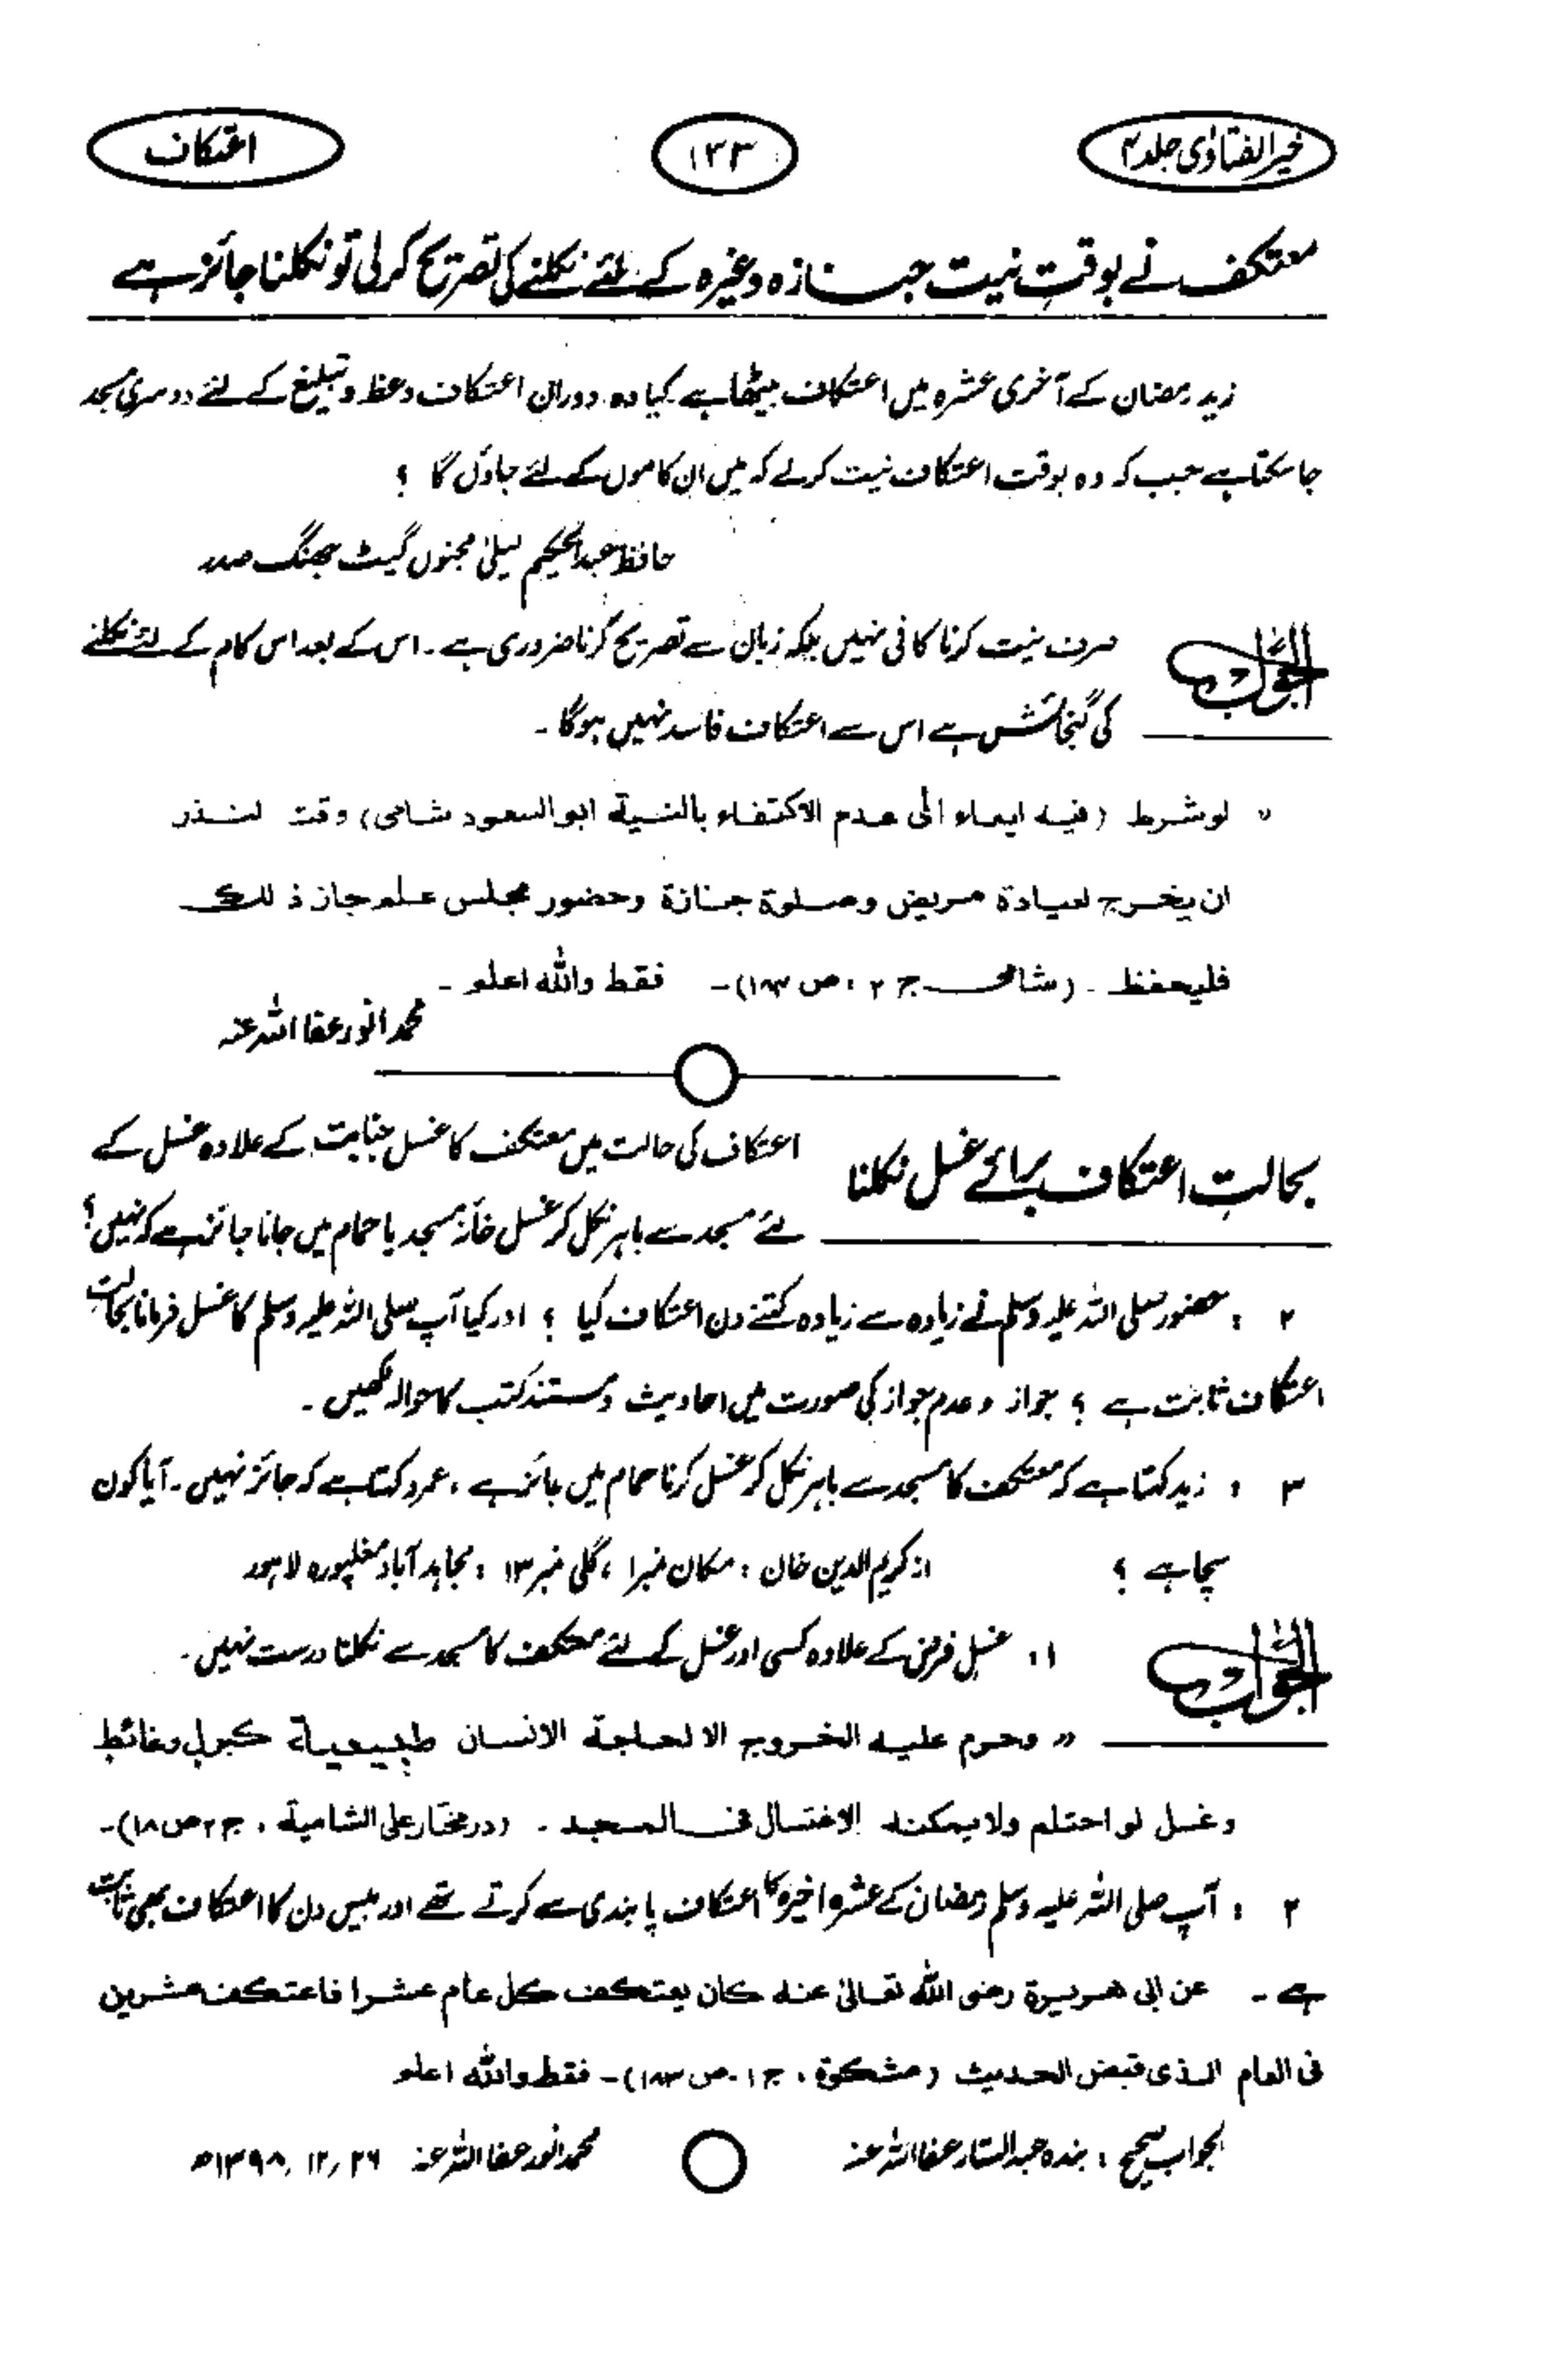 خیر الفتاوی جلد ۴
۱۳۳
اعتکاف
معتکف نے بوقتِ نیت جنازہ وغیرہ کے لئے نکلنے کی تصریح کرلی تو نکلنا جائز ہے
زید رمضان کے آخری عشرہ میں اعتکاف بیٹھا ہے کیا وہ دوران اعتکاف وعظ و تبلیغ کے لئے دوسری مسجد
جا سکتا ہے جب کہ وہ بوقت اعتکاف نیت کرلے کہ میں ان کاموں کے لئے جاؤں گا ؟
حافظ عبدالحکیم لیلیٰ مجنوں گیٹ جھنگ صدر
الجواب
صرف نیت کرنا کافی نہیں بلکہ زبان سے تصریح کرنا ضروری ہے ۔ اس کے بعد اس کام کے لئے نکلنے
کی گنجائش ہے اس سے اعتکاف فاسد نہیں ہوگا ۔
” لو شرط (فیه ایماء الی عدم الاکتفاء بالنیة ابو السعود شامی) وقت النذر
ان یخرج لعیادة مریض وصلوة جنازة وحضور مجلس علم جاز ذلك
فلیحفظ ۔ (شامی ج ۲ ، ص ۱۸۳)۔ فقط واللہ اعلم ۔
محمد انور عفا اللہ عنہ
بحالتِ اعتکاف برائے غسل نکلنا
اعتکاف کی حالت میں معتکف کا غسل جنابت کے علاوہ غسل کے
لئے مسجد سے باہر نکل کر غسل خانۂ مسجد یا حمام میں جانا جائز ہے کہ نہیں ؟
۲ : حضور صلی اللہ علیہ وسلم نے زیادہ سے زیادہ کتنے دن اعتکاف کیا ؟ اور کیا آپ صلی اللہ علیہ وسلم کا غسل فرمانا بحالت
اعتکاف ثابت ہے ؟ جواز و عدم جواز کی صورت میں احادیث و مستند کتب کا حوالہ لکھیں ۔
۳ : زید کہتا ہے کہ معتکف کا مسجد سے باہر نکل کر غسل کرنا حمام میں جائز ہے ، عمرو کہتا ہے کہ جائز نہیں ۔ آیا کون
سچا ہے ؟ از کریم الدین خان : مکان نمبر ۱ ، گلی نمبر ۱۳ : مجاہد آباد مغلپورہ لاہور
الجواب
۱ : غسل فرض کے علاوہ کسی اور غسل کے لئے معتکف کا مسجد سے نکلنا درست نہیں ۔
” وحرم علیه الخروج الا لحاجة الانسان طبیعیة کبول وغائط
وغسل لو احتلم ولا یمکنه الاغتسال فی المسجد ۔ (در مختار علی الشامیة ، ج ۲ ص ۱۸)۔
۲ : آپ صلی اللہ علیہ وسلم رمضان کے عشرہ اخیرہ کا اعتکاف پابندی سے کرتے تھے اور بیس دن کا اعتکاف بھی ثابت
ہے ۔ عن ابی هریرة رضی اللہ تعالیٰ عنه کان یعتکف کل عام عشرا فاعتکف عشرین
فی العام الذی قبض الحدیث (مشکوة ، ج ۱ ۔ ص ۱۸۳)۔ فقط واللہ اعلم
الجواب صحیح : بندہ عبدالستار عفا اللہ عنہ
محمد انور عفا اللہ عنہ ۲۶ ، ۱۲ ، ۱۳۹۸ھ